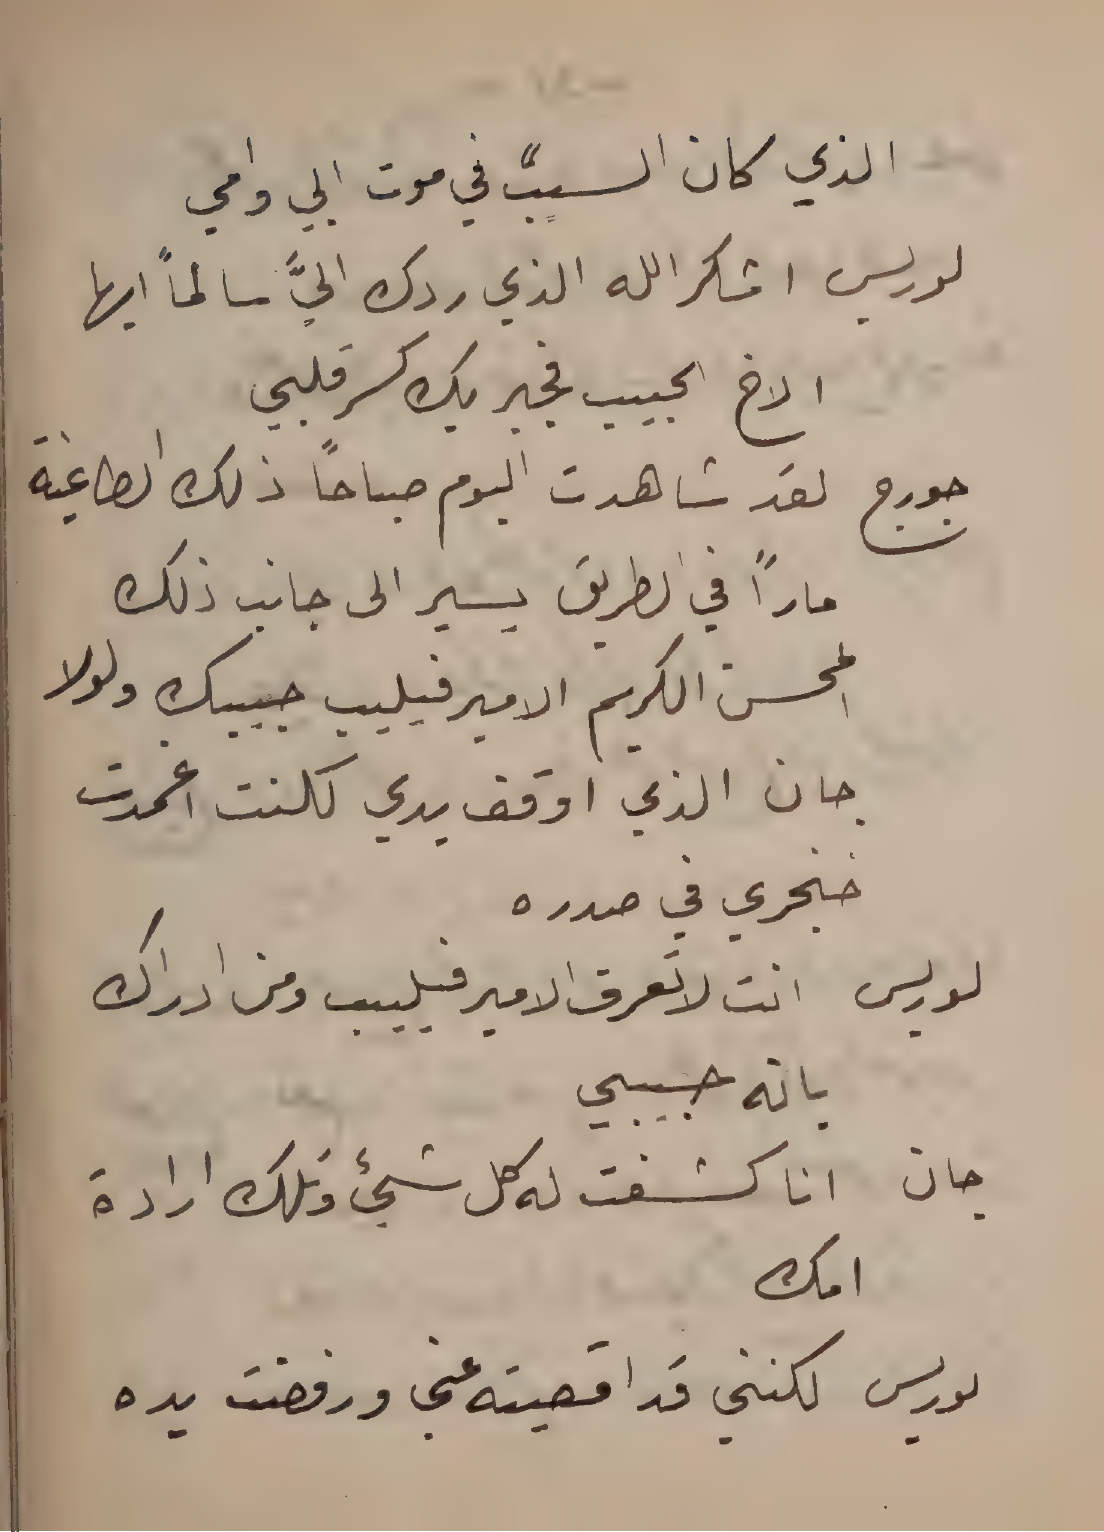 الذي كان السبب في موت ابي وامي
لوريس اشكر الله الذي ردك اليَّ سالماً ايها
الاخ الحبيب فخبر يك كسر قلبي
جورج لقد شاهدت اليوم صباحاً ذلك الطاغية
ماراً في الطريق يسير الى جانب ذلك
المحسن الكريم الامير فيليب حبيبك ولولا
جان الذي اوقف يدي لكنت اغمدت
خنجري في صدره
لوريس انت لا تعرف الامير فيليب ومن ادراك
بانه حبيبي
جان انا كشفت له كل شيئ وتلك ارادة
امك
لوريس لكنني قد اقصيته عني ورفضت يده